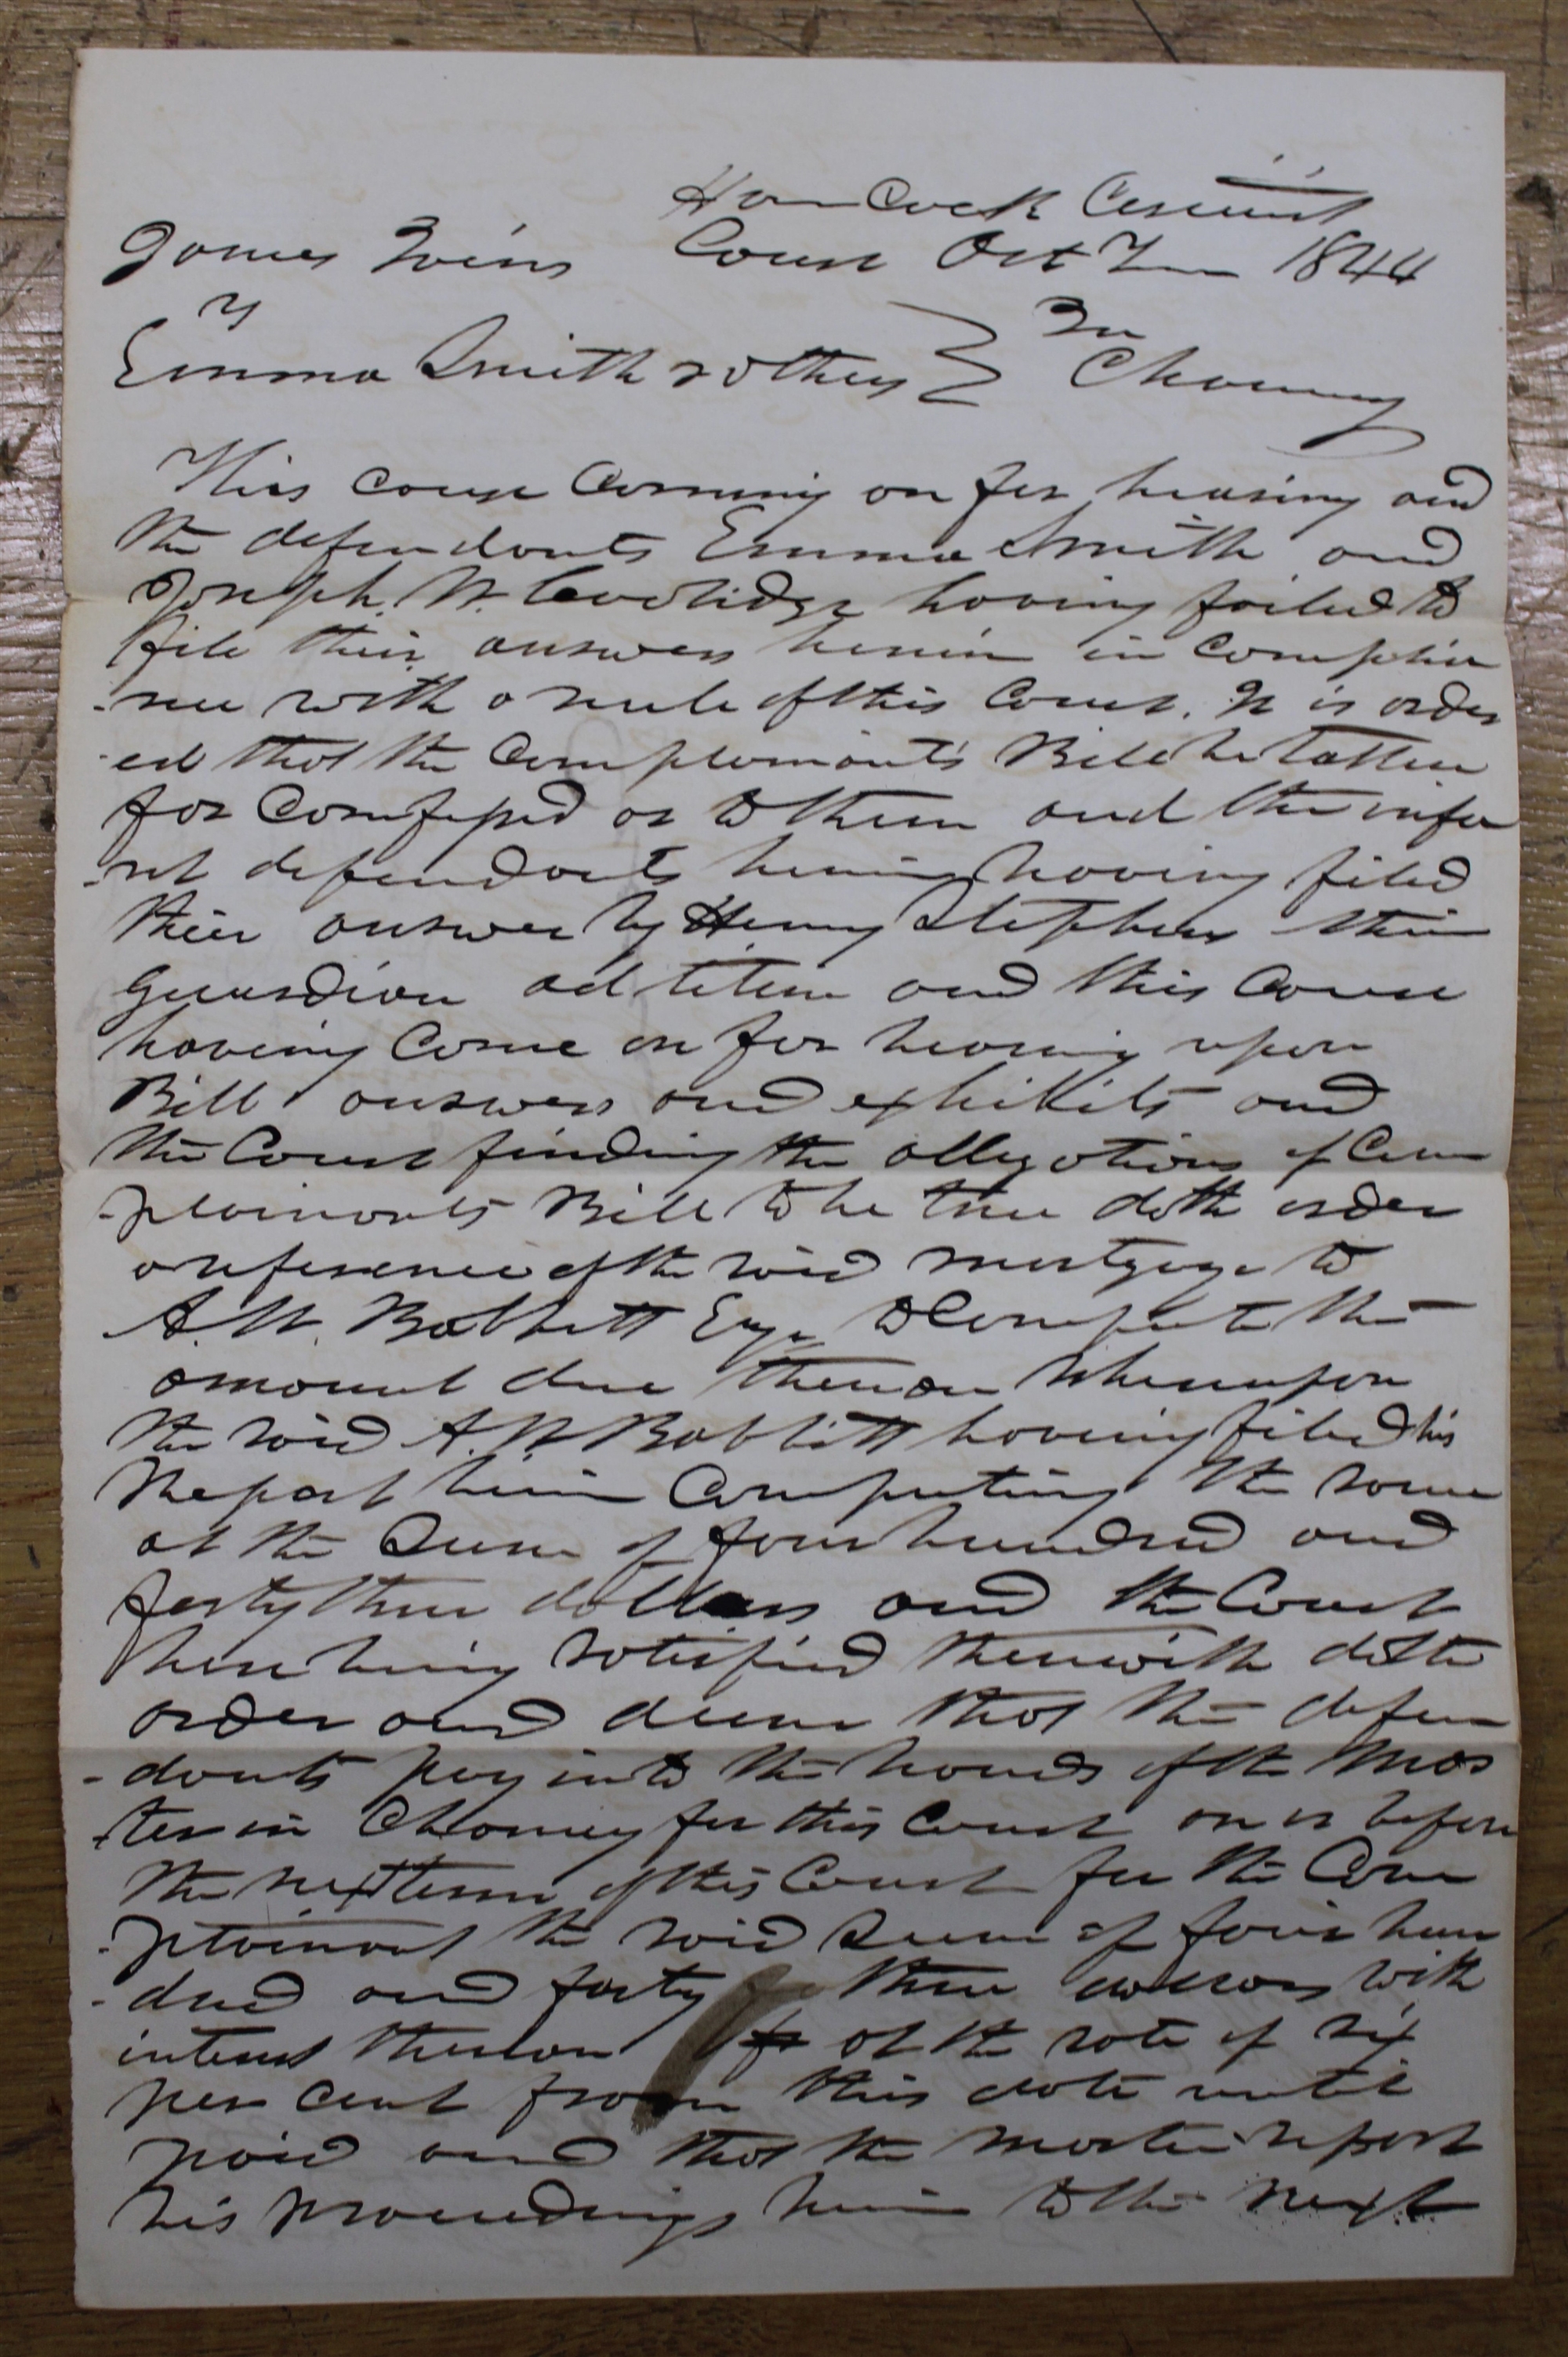 Hancock Circuit
James Ivins Court Oct Tm 1844
vs
Emma Smith & others } In Chancery
This cause coming on for hearing and
the defendants Emma Smith and
Joseph W. Coolidge having failed to
file their answers herein in complia
-nce with a rule of this Court. It is order
-ed that the Complainants Bill be taken
for Confessed as to them and the infa
-nt defendants herein having filed
their answer by Henry Stephens their
guardian ad litem and this cause
having come on for hearing upon
Bill answers and exhibits and
the Court finding the allegations of Com
-plainants Bill to be true doth order
a reference of the said mortgage to
A. W. Babbitt Esqr to compute the
amount due thereon Whereupon
the said A. W Babbitt having filed his
Report herein Computing the same
at the Sum of four hundred and
forty three dollars and the Court
here being satisfied therewith doth
order and decree that the defen
-dants pay into the hands of the Mas
-ter in Chancery for this Court on or before
the next term of this Court for the Com
-plainant the said Sum of four hun
-dred and forty three dollars with
interest thereon at the rate of six
per cent from this date until
paid and that the master report
his proceedings herein to the next